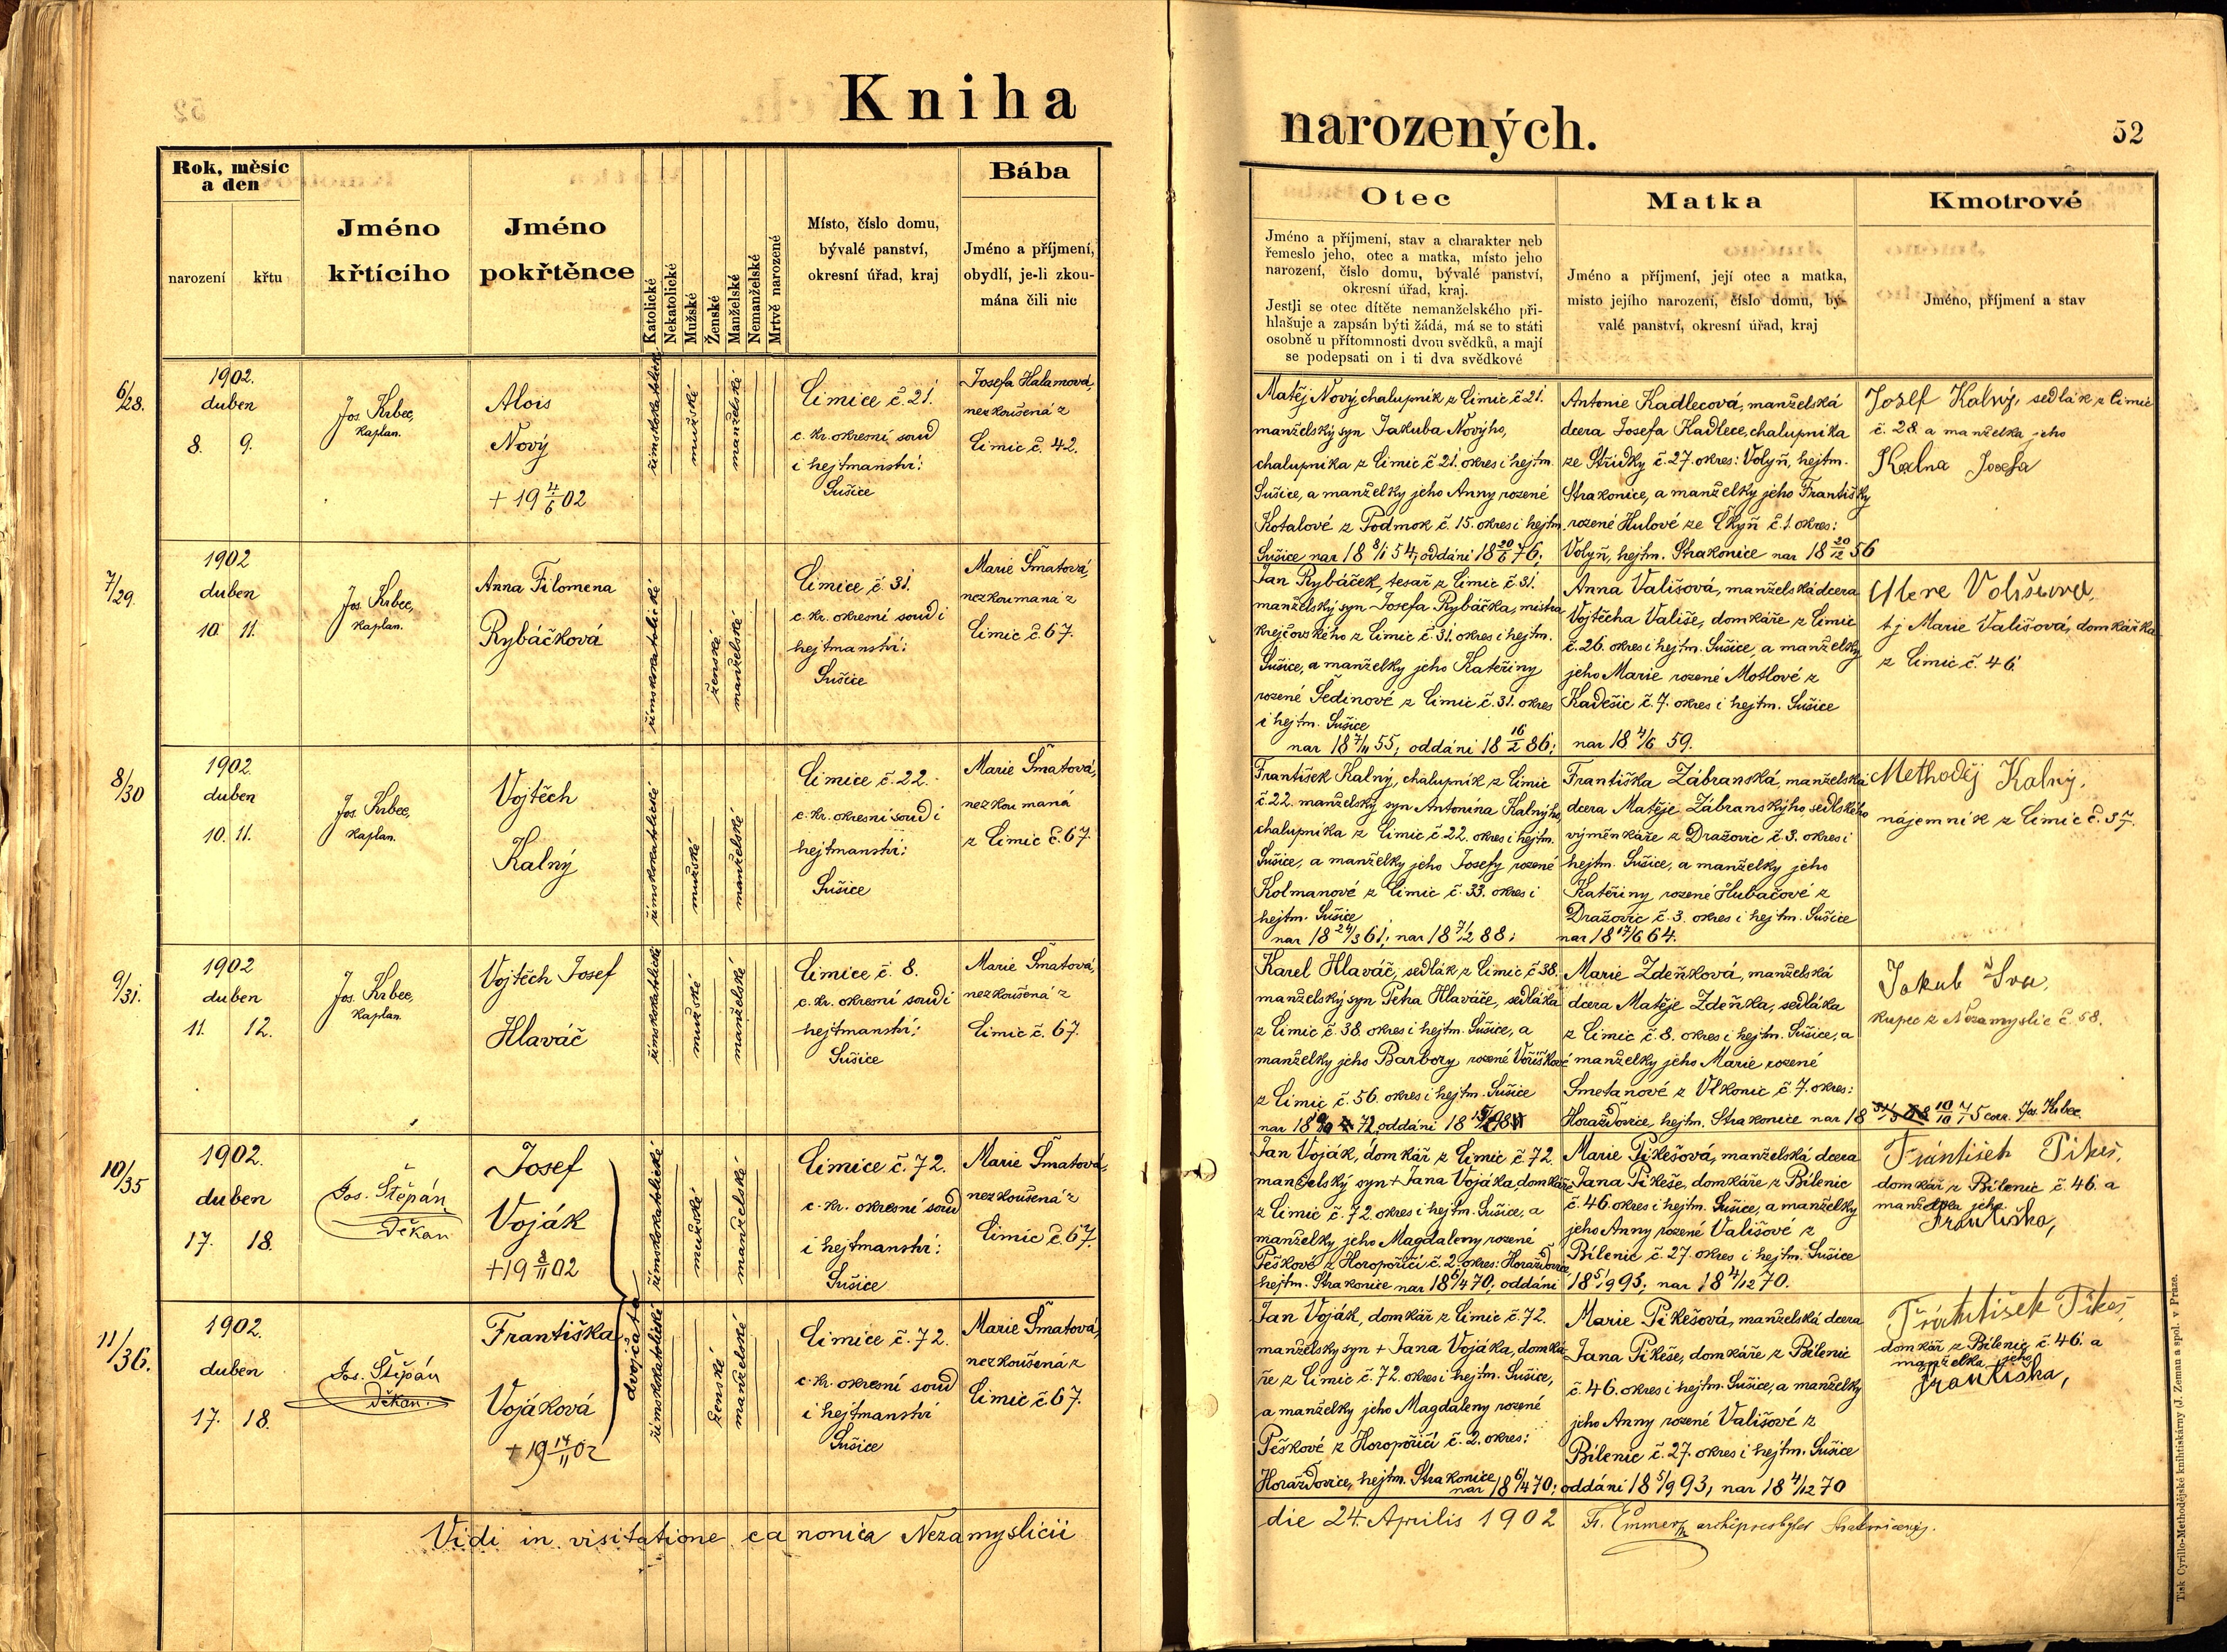 Kniha
narozených.
52
Rok, měsíc
a den
narození
křtu
Jméno
křtícího
Jméno
pokřtěnce
Katolické
Nekatolické
Mužské
Ženské
Manželské
Nemanželské
Mrtvě narozené
Místo, číslo domu,
bývalé panství,
okresní úřad, kraj
Bába
Jméno a příjmení,
obydlí, je-li zkou-
mána čili nic
Otec
Jméno a příjmení, stav a charakter neb
řemeslo jeho, otec a matka, místo jeho
narození, číslo domu, bývalé panství,
okresní úřad, kraj.
Jestli se otec dítěte nemanželského při-
hlašuje a zapsán býti žádá, má se to státi
osobně u přítomnosti dvou svědků, a mají
se podepsati on i ti dva svědkové
Matka
Jméno a příjmení, její otec a matka,
místo jejího narození, číslo domu, bý-
valé panství, okresní úřad, kraj
Kmotrové
Jméno, příjmení a stav
6/28.
1902.
duben
8. 9.
Jos. Krbec,
kaplan.
Alois
Nový
+ 19 4/6 02
římskokatolické
mužské
manželské
Čimice č. 21.
c. kr. okresní soud
i hejtmanství:
Sušice
Josefa Halamová,
nezkoušená z
Čimic č. 42.
Matěj Nový, chalupník z Čimic č. 21.
manželský syn Jakuba Nového,
chalupníka z Čimic č. 21. okres i hejtm.
Sušice, a manželky jeho Anny rozené
Kotalové z Podmok č. 15. okres i hejtm.
Sušice nar 18 8/1 54, oddáni 18 20/6 76;
Antonie Kadlecová, manželská
dcera Josefa Kadlece, chalupníka
ze Střídky č. 27. okres: Volyň, hejtm.
Strakonice, a manželky jeho Františky
rozené Hulové ze Čkyň č. 1. okres:
Volyň, hejtm. Strakonice nar 18 20/12 56
Josef Kalný, sedlák z Čimic
č. 28. a manželka jeho
Kalna Josefa
7/29.
1902
duben
10. 11.
Jos. Krbec,
kaplan.
Anna Filomena
Rybáčková
římskokatolické
ženské
manželské
Čimice č. 31.
c. kr. okresní soud i
hejtmanství:
Sušice
Marie Šmatová,
nezkoumaná z
Čimic č. 67.
Jan Rybáček, tesař z Čimic č. 31.
manželský syn Josefa Rybáčka, mistra
krejčovského z Čimic č. 31. okres i hejtm.
Sušice, a manželky jeho Kateřiny
rozené Šedinové z Čimic č. 31. okres
i hejtm. Sušice
nar 18 7/11 55; oddáni 18 16/2 86;
Anna Vališová, manželská dcera
Vojtěcha Vališe, domkáře z Čimic
č. 26. okres i hejtm. Sušice, a manželky
jeho Marie rozené Motlové z
Kadešic č. 7. okres i hejtm. Sušice
nar 18 4/6 59.
tj Marie Vališová, domkářka
z Čimic č. 46.
8/30
1902.
duben
10. 11.
Jos. Krbec,
kaplan.
Vojtěch
Kalný
římskokatolické
mužské
manželské
Čimice č. 22.
c. kr. okresní soud i
hejtmanství:
Sušice
Marie Šmatová,
nezkoumaná
z Čimic č. 67.
František Kalný, chalupník z Čimic
č. 22. manželský syn Antonína Kalnýho,
chalupníka z Čimic č. 22. okres i hejtm.
Sušice, a manželky jeho Josefy rozené
Kolmanové z Čimic č. 33. okres i
hejtm. Sušice
nar 18 24/3 61; nar 18 7/2 88;
Františka Zábranská, manželská
dcera Matěje Zábranskýho, sedlského
výměnkáře z Dražovic č. 3. okres i
hejtm. Sušice, a manželky jeho
Kateřiny rozené Hubačové z
Dražovic č. 3. okres i hejtm. Sušice
nar 18 17/6 64.
Methoděj Kalný,
nájemník z Čimic č. 37.
9/31.
1902
duben
11. 12.
Jos. Krbec,
kaplan.
Vojtěch Josef
Hlaváč
římskokatolické
mužské
manželské
Čimice č. 8.
c. kr. okresní soud i
hejtmanství:
Sušice
Marie Šmatová,
nezkoušená z
Čimic č. 67.
Karel Hlaváč, sedlák z Čimic č. 38.
manželský syn Petra Hlaváče, sedláka
z Čimic č. 38 okres i hejtm. Sušice, a
manželky jeho Barbory rozené Voříškové
z Čimic č. 56. okres i hejtm. Sušice
nar 18 72, oddáni 18
Marie Zdeňková, manželská
dcera Matěje Zdeňka, sedláka
z Čimic č. 8. okres i hejtm. Sušice, a
manželky jeho Marie rozené
Smetanové z Vlkonic č. 7. okres:
Horažďovice, hejtm. Strakonice nar 18 10/10 75 corr. Jos. Krbec.
Jakub
kupec z Nezamyslic č. 58.
10/35
1902.
duben
17. 18.
Jos. Štěpán
Děkan
Josef
Voják
+19 8/11 02
dvojčata
římskokatolické
mužské
manželské
Čimice č. 72.
c. kr. okresní soud
i hejtmanství:
Sušice
Marie Šmatová,
nezkoušená z
Čimic č. 67.
Jan Voják, domkář z Čimic č. 72.
manželský syn + Jana Vojáka, domkáře
z Čimic č. 72 okres i hejtm. Sušice, a
manželky jeho Magdaleny rozené
Peškové z Horopořičí č. 2. okres: Horažďovice
hejtm. Strakonice nar 18 6/4 70; oddáni
Marie Pikešová, manželská dcera
Jana Pikeše, domkáře z Bílenic
č. 46. okres i hejtm. Sušice, a manželky
jeho Anny rozené Vališové z
Bílenic č. 27. okres i hejtm. Sušice
18 5/9 93; nar 18 4/12 70.
František Pikeš,
domkář z Bílenic č. 46. a
manželka jeho
Františka,
11/36.
1902.
duben
17. 18.
Jos. Štěpán
Děkan.
Františka
Vojáková
+ 19 14/11 02
římskokatolické
ženské
manželské
Čimice č. 72.
c. kr. okresní soud
i hejtmanství
Sušice
Marie Šmatová,
nezkoušená z
Čimic č. 67.
Jan Voják, domkář z Čimic č. 72.
manželsky syn + Jana Vojáka, domká
ře z Čimic č. 72. okres i hejtm. Sušice,
a manželky jeho Magdaleny rozené
Peškové z Horopořičí č. 2. okres:
Horažďovice, hejtm. Strakonice nar 18 6/4 70;
Marie Pikešová, manželská dcera
Jana Pikeše, domkáře z Bílenic
č. 46. okres i hejtm. Sušice, a manželky
jeho Anny rozené Vališové z
Bílenic č. 27. okres i hejtm. Sušice
oddáni 18 5/9 93, nar 18 4/12 70
František Pikeš,
domkář z Bílenic č. 46. a
manželka jeho
Františka,
Vidi in visitatione canonica Nezamyslicii
die 24. Aprilis 1902
archipresbyter
Tisk Cyrillo-Methodějské knihtiskárny (J. Zeman a spol. v Praze.